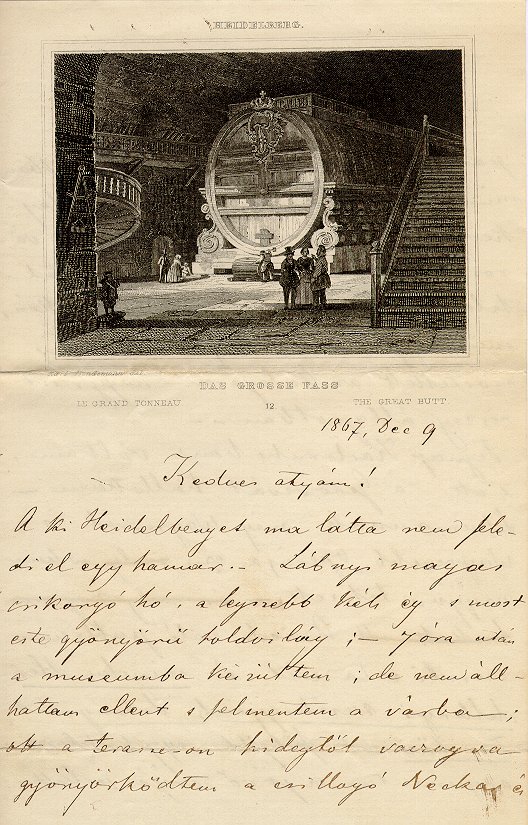 HEIDELBERG.
DAS GROSSE FASS
LE GRAND TONNEAU 12 THE GREAT BUTT
1867, Dec 9
Kedves atyám!
A ki Heidelberget ma látta nem fele-
di el egyhamar. – Lábnyi magas
csikorgó hó, a legszebb kék ég s most
este gyönyörü holdvilág; – 7 óra után
a museumba készültem; de nem áll-
hattam ellent s felmentem a várba;
ott a terasse-on hidegtől vaczogva
gyönyörködtem a csillogó Neckar és